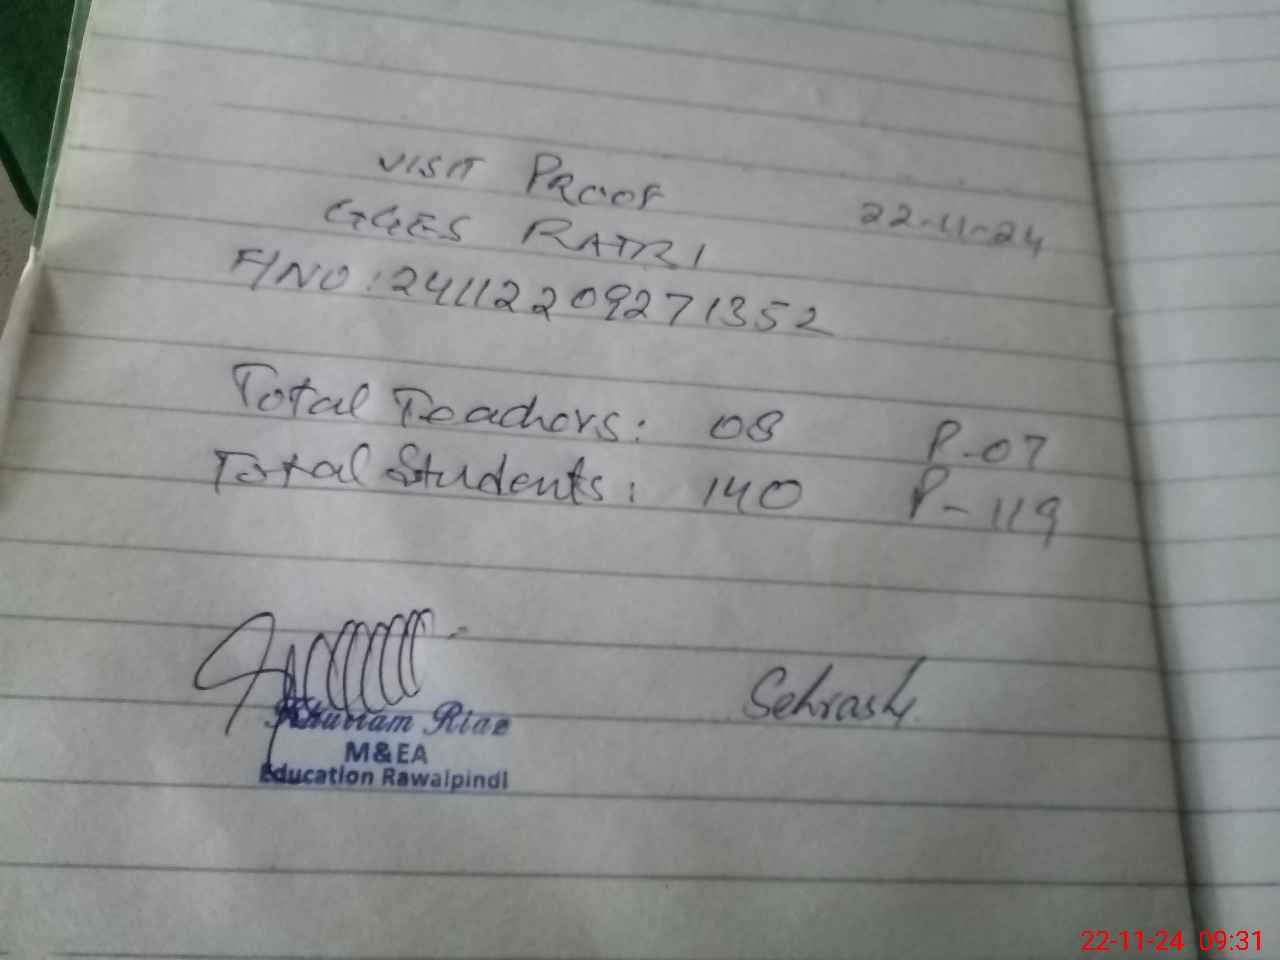 VISIT PROOF
22-11-24
GGES RATRI
F/NO: 24112209271352
Total Teachers: 08 P-07
Total Students: 140 P-119
Sehrash
Khurram Riaz
M&EA
Education Rawalpindi
22-11-24 09:31